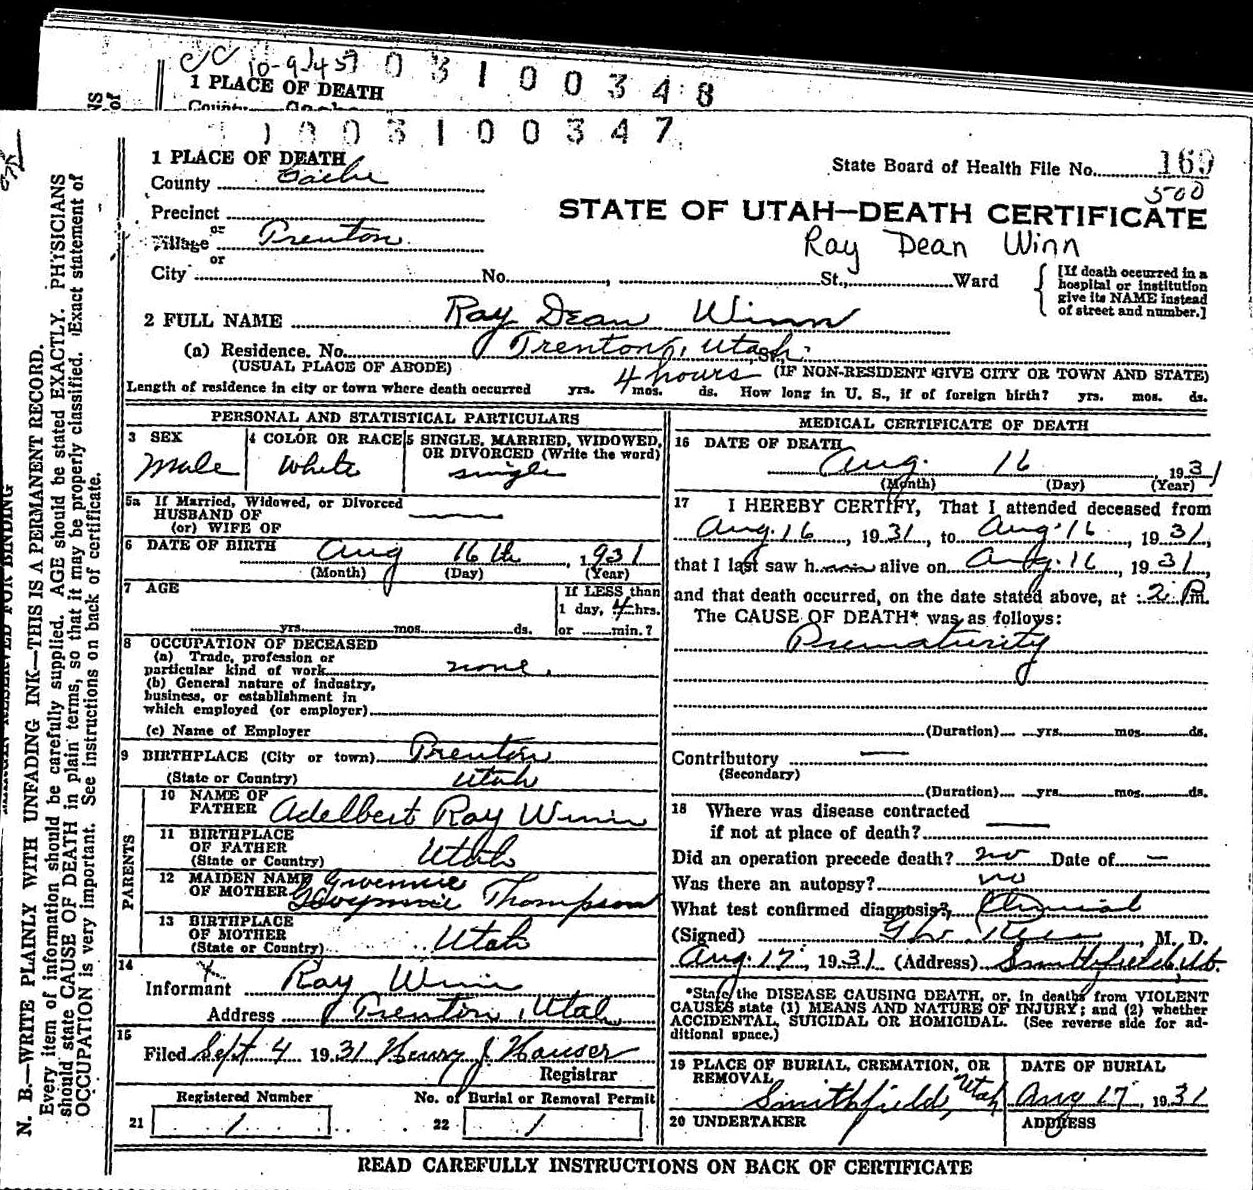 10-9-1457 0 3 1 0 0 3 4 8
1 PLACE OF DEATH
0 0 3 1 0 0 3 4 7
1 PLACE OF DEATH
County Cache
State Board of Health File No. 169
500
Precinct
or
Village Trenton
or
City No. , St., Ward
STATE OF UTAH—DEATH CERTIFICATE
Ray Dean Winn
[If death occurred in a
hospital or institution
give its NAME instead
of street and number.]
2 FULL NAME Ray Dean Winn
(a) Residence. No. Trenton, Utah St.
(USUAL PLACE OF ABODE) (IF NON-RESIDENT GIVE CITY OR TOWN AND STATE)
4 hours
Length of residence in city or town where death occurred yrs. mos. ds. How long in U. S., if of foreign birth? yrs. mos. ds.
PERSONAL AND STATISTICAL PARTICULARS
3 SEX
Male
4 COLOR OR RACE
White
5 SINGLE, MARRIED, WIDOWED,
OR DIVORCED (Write the word)
single
5a If Married, Widowed, or Divorced
HUSBAND OF
(or) WIFE OF
6 DATE OF BIRTH Aug 16th, 1931
(Month) (Day) (Year)
7 AGE
yrs. mos. ds.
If LESS than
1 day, 4 hrs.
or min.?
8 OCCUPATION OF DECEASED
(a) Trade, profession or
particular kind of work none.
(b) General nature of industry,
business, or establishment in
which employed (or employer)
(c) Name of Employer
9 BIRTHPLACE (City or town) Trenton
(State or Country) Utah
PARENTS
10 NAME OF
FATHER Adelbert Ray Winn
11 BIRTHPLACE
OF FATHER
(State or Country) Utah
12 MAIDEN NAME
OF MOTHER Thompson
13 BIRTHPLACE
OF MOTHER
(State or Country) Utah
14
Informant Ray Winn
Address Trenton, Utah
15
Filed Sept 4 1931 Henry J Hauser
Registrar
Registered Number No. of Burial or Removal Permit
21 1 22 1
MEDICAL CERTIFICATE OF DEATH
16 DATE OF DEATH
Aug. 16 1931
(Month) (Day) (Year)
17 I HEREBY CERTIFY, That I attended deceased from
Aug. 16, 1931, to Aug. 16, 1931,
that I last saw him alive on Aug. 16, 1931,
and that death occurred, on the date stated above, at 2 P.m.
The CAUSE OF DEATH* was as follows:
Prematurity
(Duration) yrs. mos. ds.
Contributory —
(Secondary)
(Duration) yrs. mos. ds.
18 Where was disease contracted
if not at place of death? —
Did an operation precede death? no Date of —
Was there an autopsy? no
What test confirmed diagnosis? Clinical
(Signed) , M. D.
Aug. 17, 1931 (Address) Smithfield, Ut.
*State the DISEASE CAUSING DEATH, or, in deaths from VIOLENT
CAUSES state (1) MEANS AND NATURE OF INJURY; and (2) whether
ACCIDENTAL, SUICIDAL OR HOMICIDAL. (See reverse side for ad-
ditional space.)
19 PLACE OF BURIAL, CREMATION, OR
REMOVAL
Smithfield, Utah
DATE OF BURIAL
Aug 17, 1931
20 UNDERTAKER
ADDRESS
READ CAREFULLY INSTRUCTIONS ON BACK OF CERTIFICATE
N. B.—WRITE PLAINLY WITH UNFADING INK—THIS IS A PERMANENT RECORD.
Every item of information should be carefully supplied. AGE should be stated EXACTLY. PHYSICIANS
should state CAUSE OF DEATH in plain terms, so that it may be properly classified. Exact statement of
OCCUPATION is very important. See instructions on back of certificate.